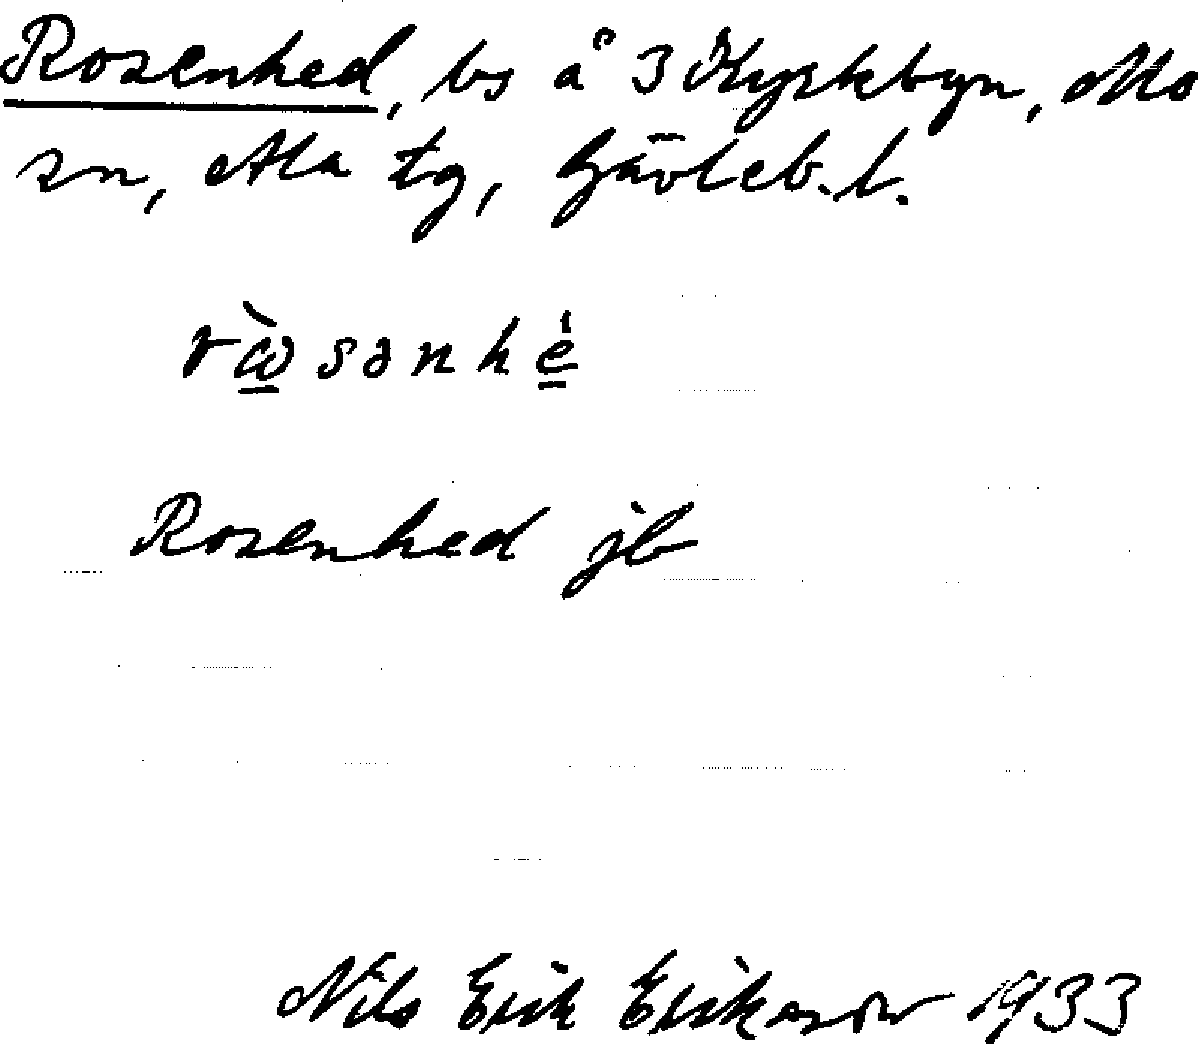 Rosenhed, bs å 3 Kyrkbyn, Mo
sn, Ala tg, Gävleb. l.
rὼsənhé
Rosenhed jb
Nils Erik Erikeson 1933